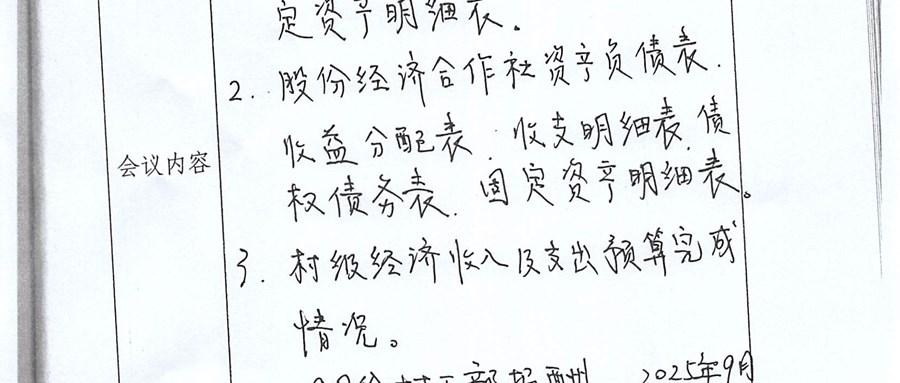 定资产明细表。
2. 股份经济合作社资产负债表.
收益分配表. 收支明细表.债
权债务表. 固定资产明细表。
会议内容
3. 村级经济收入及支出预算完成
情况。
村干部报酬 2025年9月